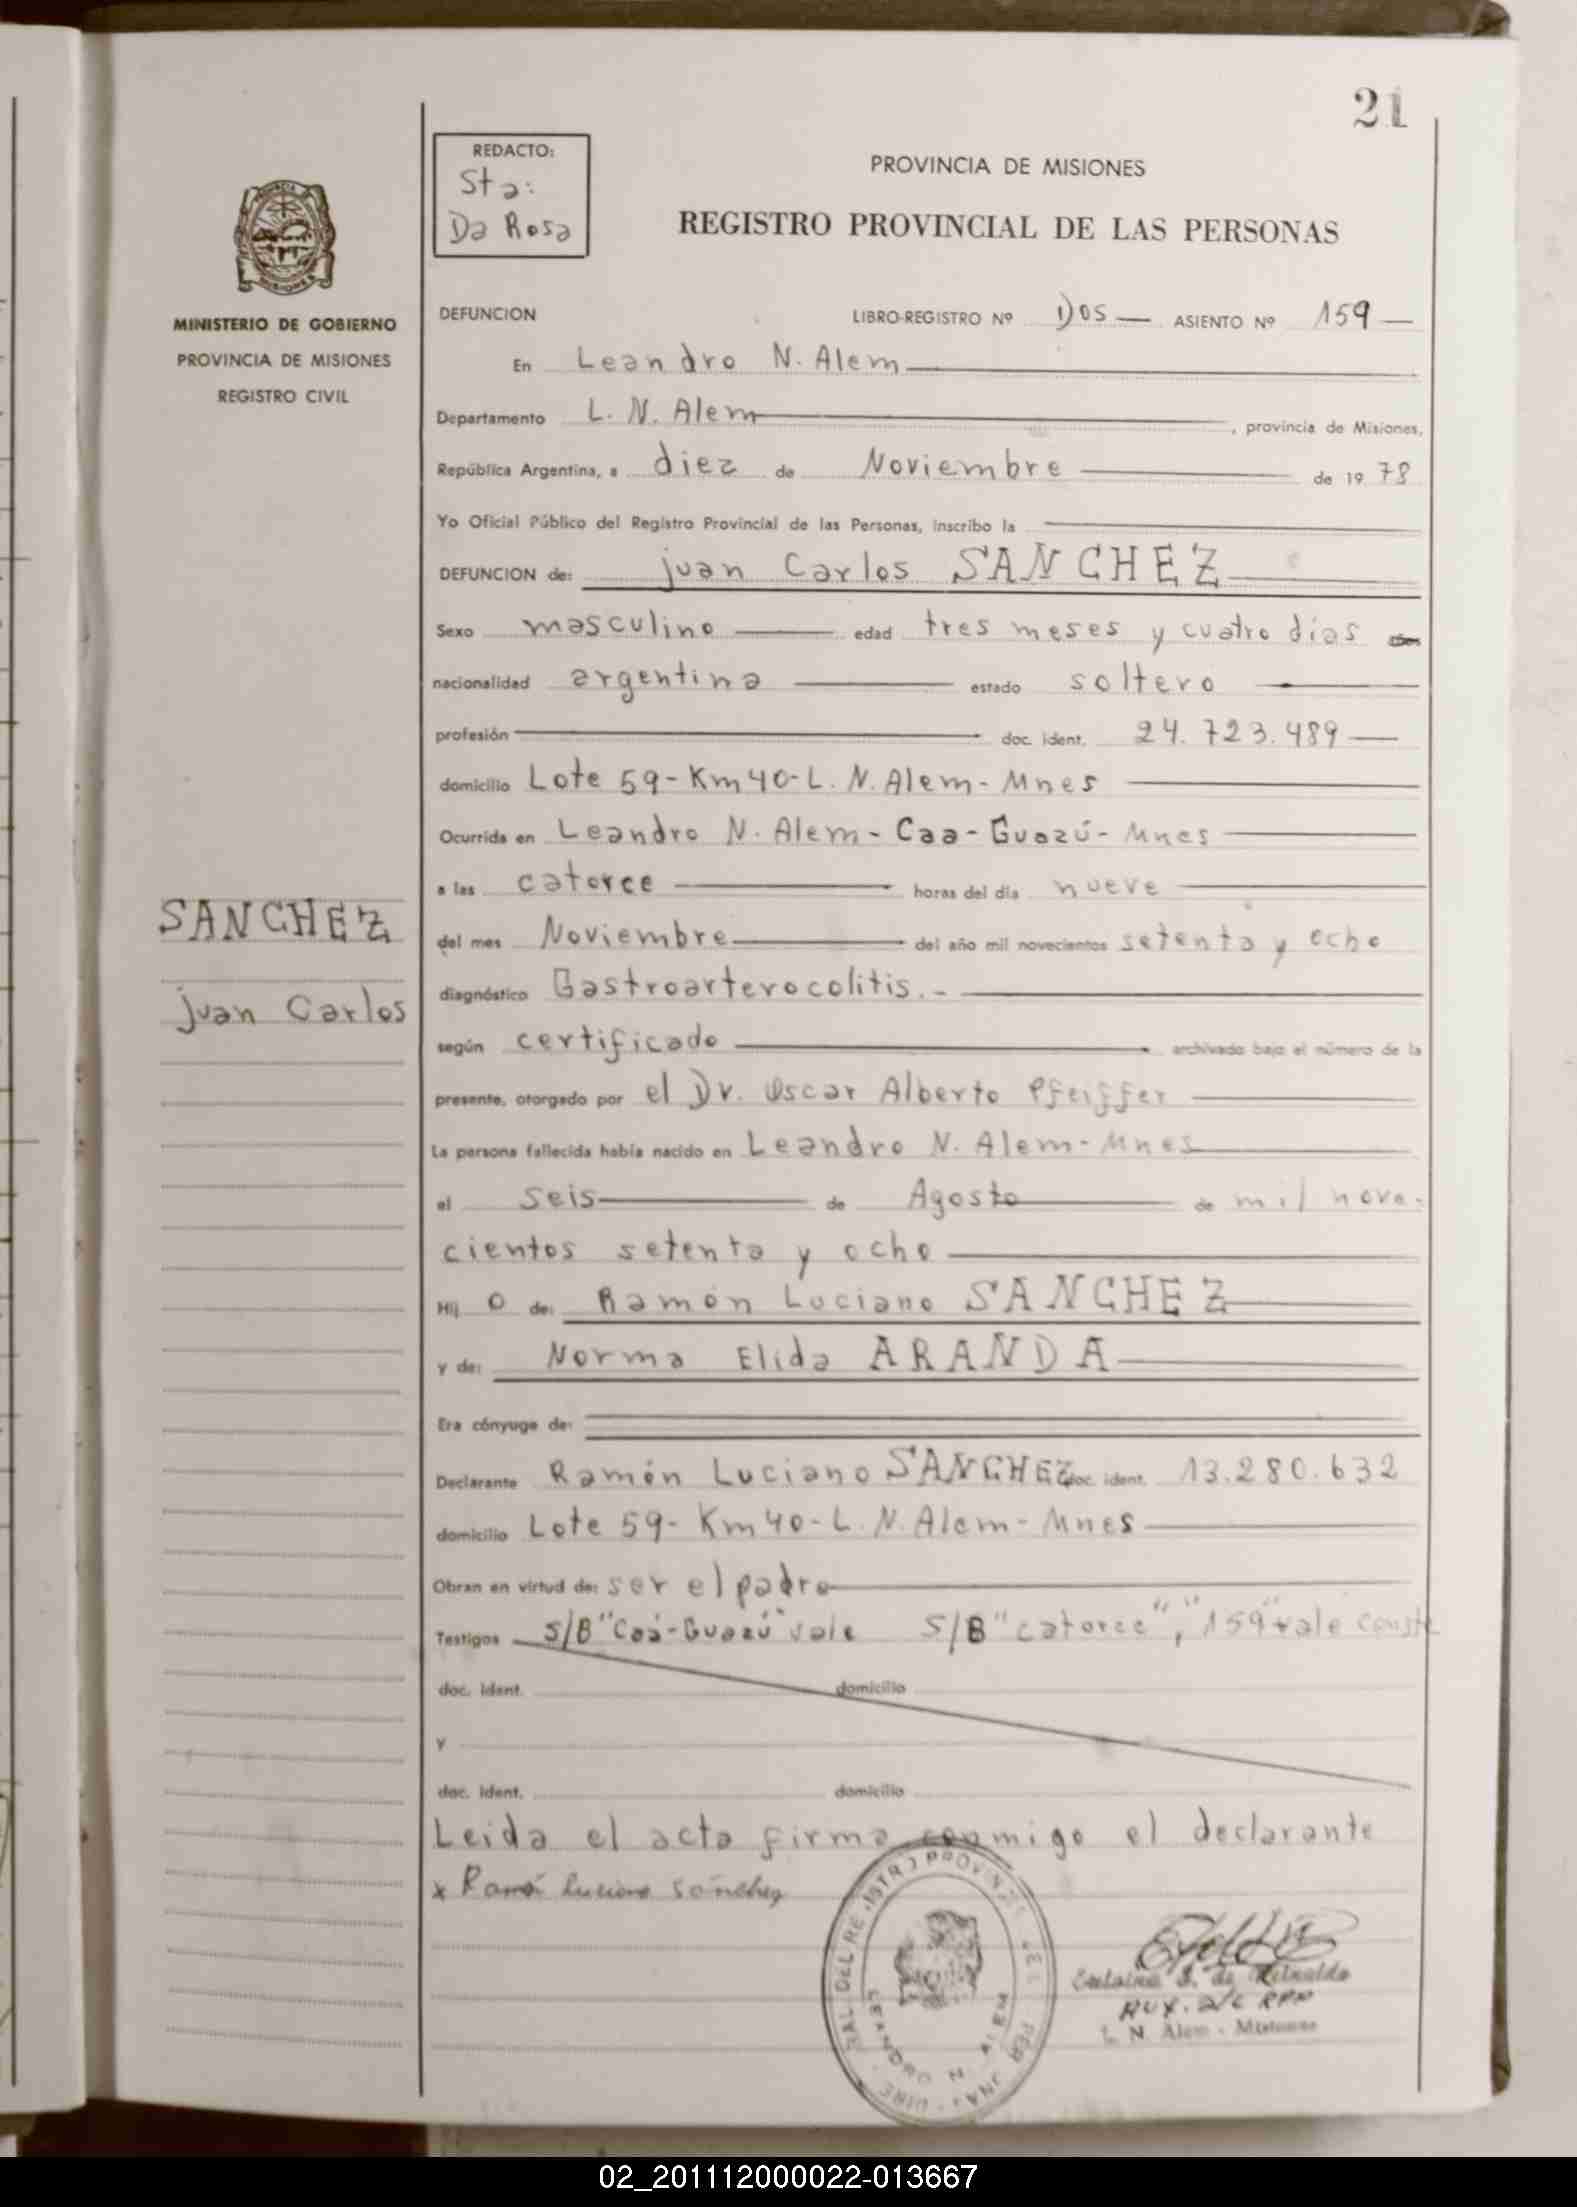 21
REDACTO:
Sta:
Da Rosa
PROVINCIA DE MISIONES
REGISTRO PROVINCIAL DE LAS PERSONAS
MINISTERIO DE GOBIERNO
PROVINCIA DE MISIONES
REGISTRO CIVIL
DEFUNCION LIBRO-REGISTRO Nº Dos — ASIENTO Nº 159 —
En Leandro N. Alem
Departamento L. N. Alem , provincia de Misiones,
República Argentina, a diez de Noviembre de 19 78
Yo Oficial Público del Registro Provincial de las Personas, inscribo la
DEFUNCION de: juan Carlos SANCHEZ
Sexo masculino edad tres meses y cuatro días
nacionalidad argentina estado soltero
profesión doc. ident. 24.723.489
domicilio Lote 59-Km40-L. N. Alem- Mnes
Ocurrida en Leandro N. Alem- Caa-Guazú- Mnes
a las catorce horas del día nueve
del mes Noviembre del año mil novecientos setenta y ocho
diagnóstico Gastroarterocolitis.-
según certificado archivado bajo el número de la
presente, otorgado por el Dr. Oscar Alberto Pfeiffer
La persona fallecida había nacido en Leandro N. Alem- Mnes
el seis de Agosto de mil nove-
cientos setenta y ocho
Hij o de: Ramón Luciano SANCHEZ
y de: Norma Elida ARANDA
Era cónyuge de:
Declarante Ramón Luciano SANCHEZ doc. ident. 13.280.632
domicilio Lote 59- Km40-L. N. Alem- Mnes
Obran en virtud de: ser el padre
Testigos S/B "Caá-Guazú" vale S/B "catorce", "159" vale conste
doc. ident. domicilio
y
doc. ident. domicilio
Leida el acta firma conmigo el declarante
x Ramón Luciano Sánchez
SANCHEZ
juan Carlos
LEANDRO N. ALEM
de Reinaldo
AUX. a/c RPP
L. N. Alem - Misiones
02_201112000022-013667